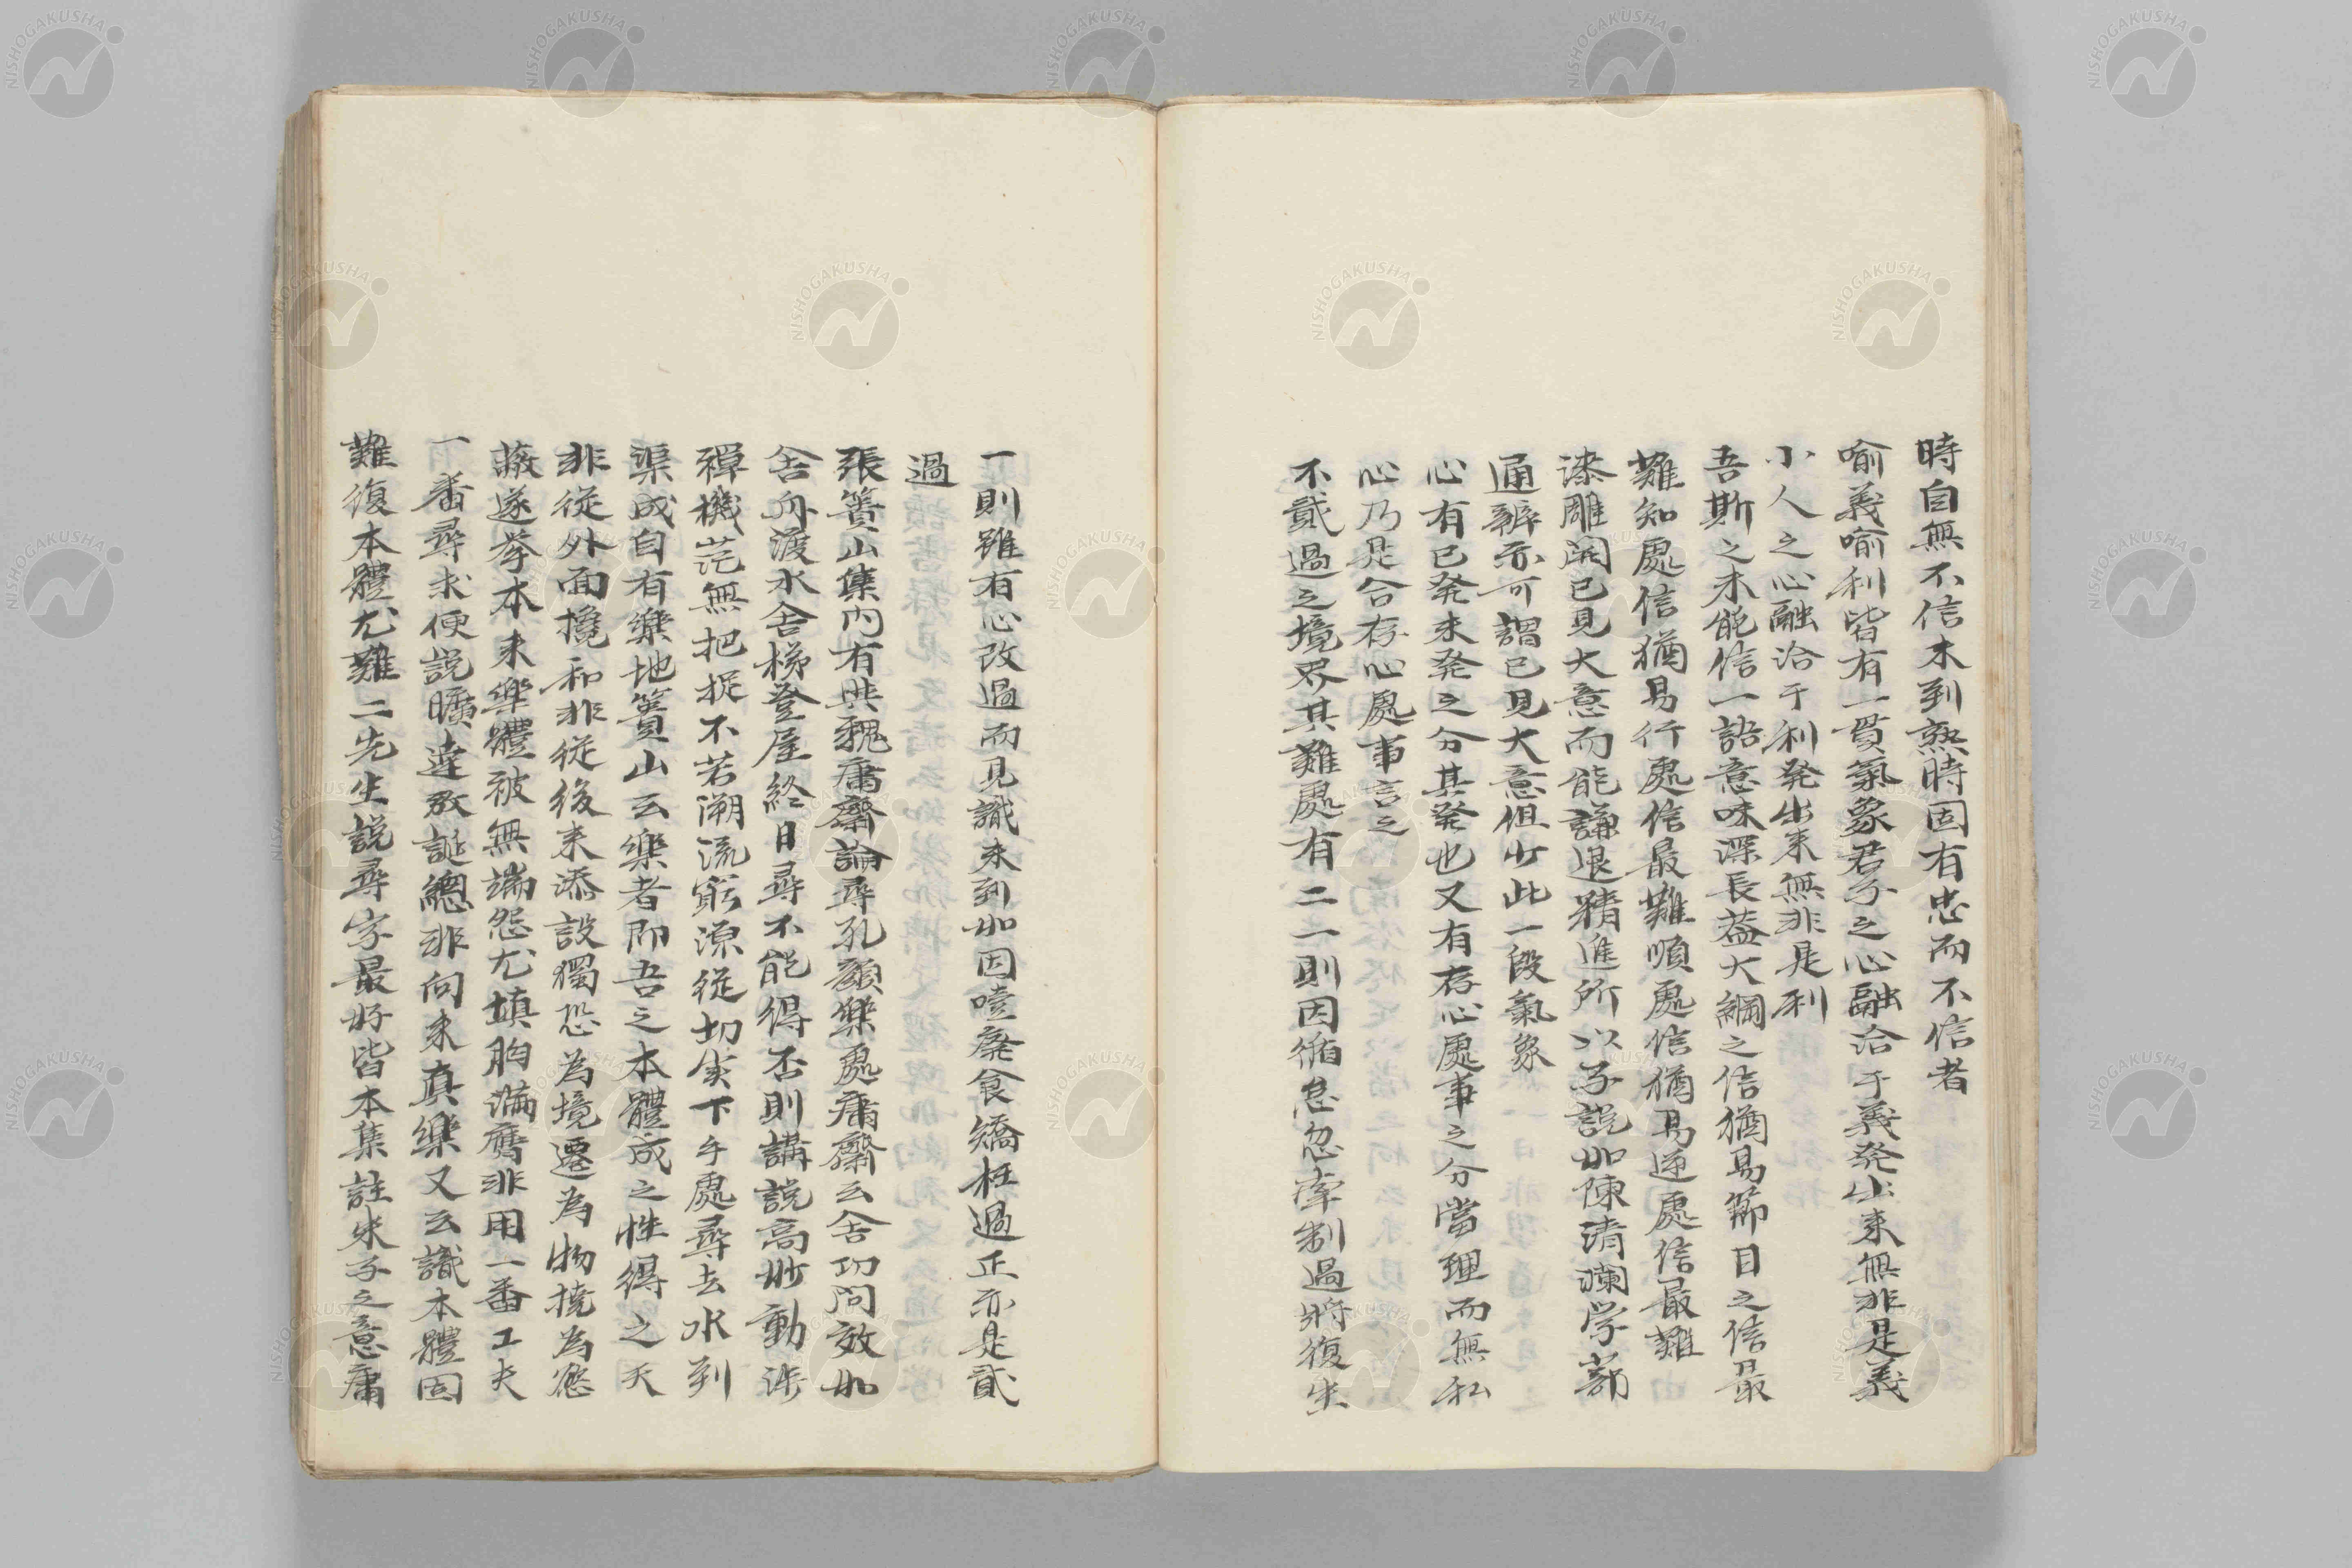 時自無不信未到熟時固有忠而不信者
喻義喻利皆有一貫氣象君子之心融洽于義発出来無非是義
小人之心融洽于利発出来無非是利
吾斯之未能信一語意味深長蓋大綱之信猶易節目之信最
難知處信猶易行處信最難順處信猶易逆處信最難
漆雕開已見大意而能謙退精進所以子説如陳清瀾学蔀
通辨亦可謂已見大意但少此一段氣象
心有已発未発之分其発也又有存心處事之分當理而無私
心乃是合存心處事言之
不貳過之境界其難處有二一則因循怠忽牽制過將復生
一則雖有心改過而見識未到如因噎廃食矯枉過正亦是貳
過
張簣山集内有與魏庸齋論尋孔顔樂處庸齋云舎功問效如
舎舟渡水舎梯登屋終日尋不能得否則講説高妙動渉
禪機茫無把捉不若溯流窮源従切実下手處尋去水到
渠成自有樂地簣山云樂者即吾之本體成之性得之天
非従外面攙和非従後来添設獨恐為境遷為物撓為慾
蔽遂挙本来樂體被無端怨尤填胸満膺非用一番工夫
一番尋求便説曠達放誕總非向来真樂又云識本體固
難復本體尤難二先生説尋字最好皆本集註朱子之意庸
NISHOGAKUSHA